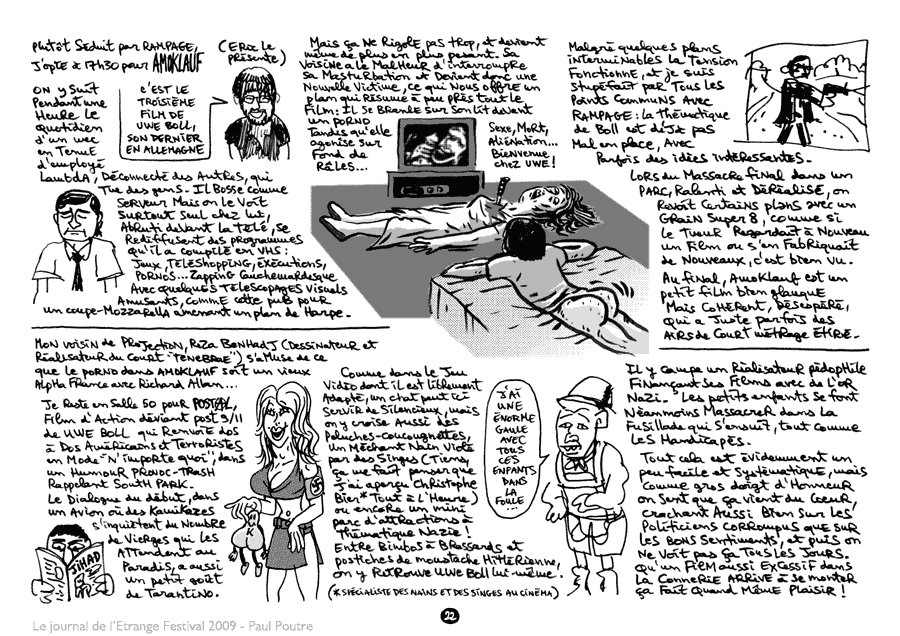 Plutôt séduit par RAMPAGE,
J'opte à 17h30 pour AMOKLAUF
(Eric le
présente)
On y suit
pendant une
heure le
quotidien
d'un mec
en tenue
d'employé
lambda, déconnecté des autres, qui
tue des gens. Il bosse comme
serveur mais on le voit
surtout seul chez lui,
abruti devant la télé, se
rediffusant des programmes
qu'il a compilé en VHS:
Jeux, téléshopping, exécutions,
pornos... Zapping cauchemardesque
avec quelques télescopages visuels
amusants, comme cette pub pour
un coupe-mozzarella amenant un plan de harpe.
C'est le
troisième
film de
Uwe Boll,
son dernier
en Allemagne
Mais ça ne rigole pas trop, et devient
même de plus en plus pesant. Sa
voisine a le malheur d'interrompre
sa masturbation et devient donc une
nouvelle victime, ce qui nous offre un
plan qui résume à peu près tout le
film: il se branle sur son lit devant
un porno
tandis qu'elle
agonise sur
fond de
râles...
Sexe, mort,
aliénation...
Bienvenue
chez Uwe!
Malgré quelques plans
interminables la tension
fonctionne, et je suis
stupéfait par tous les
points communs avec
RAMPAGE: la thématique
de Boll est déjà pas
mal en place, avec
parfois des idées intéressantes.
Lors du massacre final dans un
parc, ralenti et déréalisé, on
revoit certains plans avec un
grain super 8, comme si
le tueur regardait à nouveau
un film ou s'en fabriquait
de nouveaux, c'est bien vu.
Au final, Amoklauf est un
petit film bien glauque
mais cohérent, désespéré,
qui a juste parfois des
airs de court métrage étiré.
Mon voisin de projection, Reza Benhadj (dessinateur et
réalisateur du court "Tenebrae") s'amuse de ce
que le porno dans AMOKLAUF soit un vieux
Alpha France avec Richard Allan...
Je reste en salle 50 pour POSTAL,
film d'action déviant post 9/11
de Uwe Boll qui renvoie dos
à dos américains et terroristes
en mode "n'importe quoi", dans
un humour provoc-trash
rappelant South Park.
Le dialogue du début, dans
un avion où des kamikazes
s'inquiètent du nombre
de vierges qui les
attendent au
paradis, a aussi
un petit goût
de Tarantino.
JIHAD
K
Comme dans le jeu
vidéo dont il est librement
adapté, un chat peut ici
servir de silencieux, mais
on y croise aussi des
peluches-coucougnettes,
un méchant nain violé
par des singes (tiens,
ça me fait penser que
j'ai aperçu Christophe
Bier* tout à l'heure)
ou encore un mini
parc d'attractions à
thématique nazie!
Entre bimbos à brassards et
postiches de moustache hitlérienne,
on y retrouve Uwe Boll lui-même.
(*spécialiste des nains et des singes au cinéma)
J'ai
une
énorme
gaule
avec
tous
ces
enfants
dans
la
foule...
Il y campe un réalisateur pédophile
finançant ses films avec de l'or
nazi. Les petits enfants se font
néanmoins massacrer dans la
fusillade qui s'ensuit, tout comme
les handicapés.
Tout cela est évidemment un
peu facile et systématique, mais
comme gros doigt d'honneur
on sent que ça vient du cœur,
crachant aussi bien sur les
politiciens corrompus que sur
les bons sentiments, et puis on
ne voit pas ça tous les jours.
Qu'un film aussi excessif dans
la connerie arrive à se monter
ça fait quand même plaisir!
22
Le journal de l'Etrange Festival 2009 - Paul Poutre